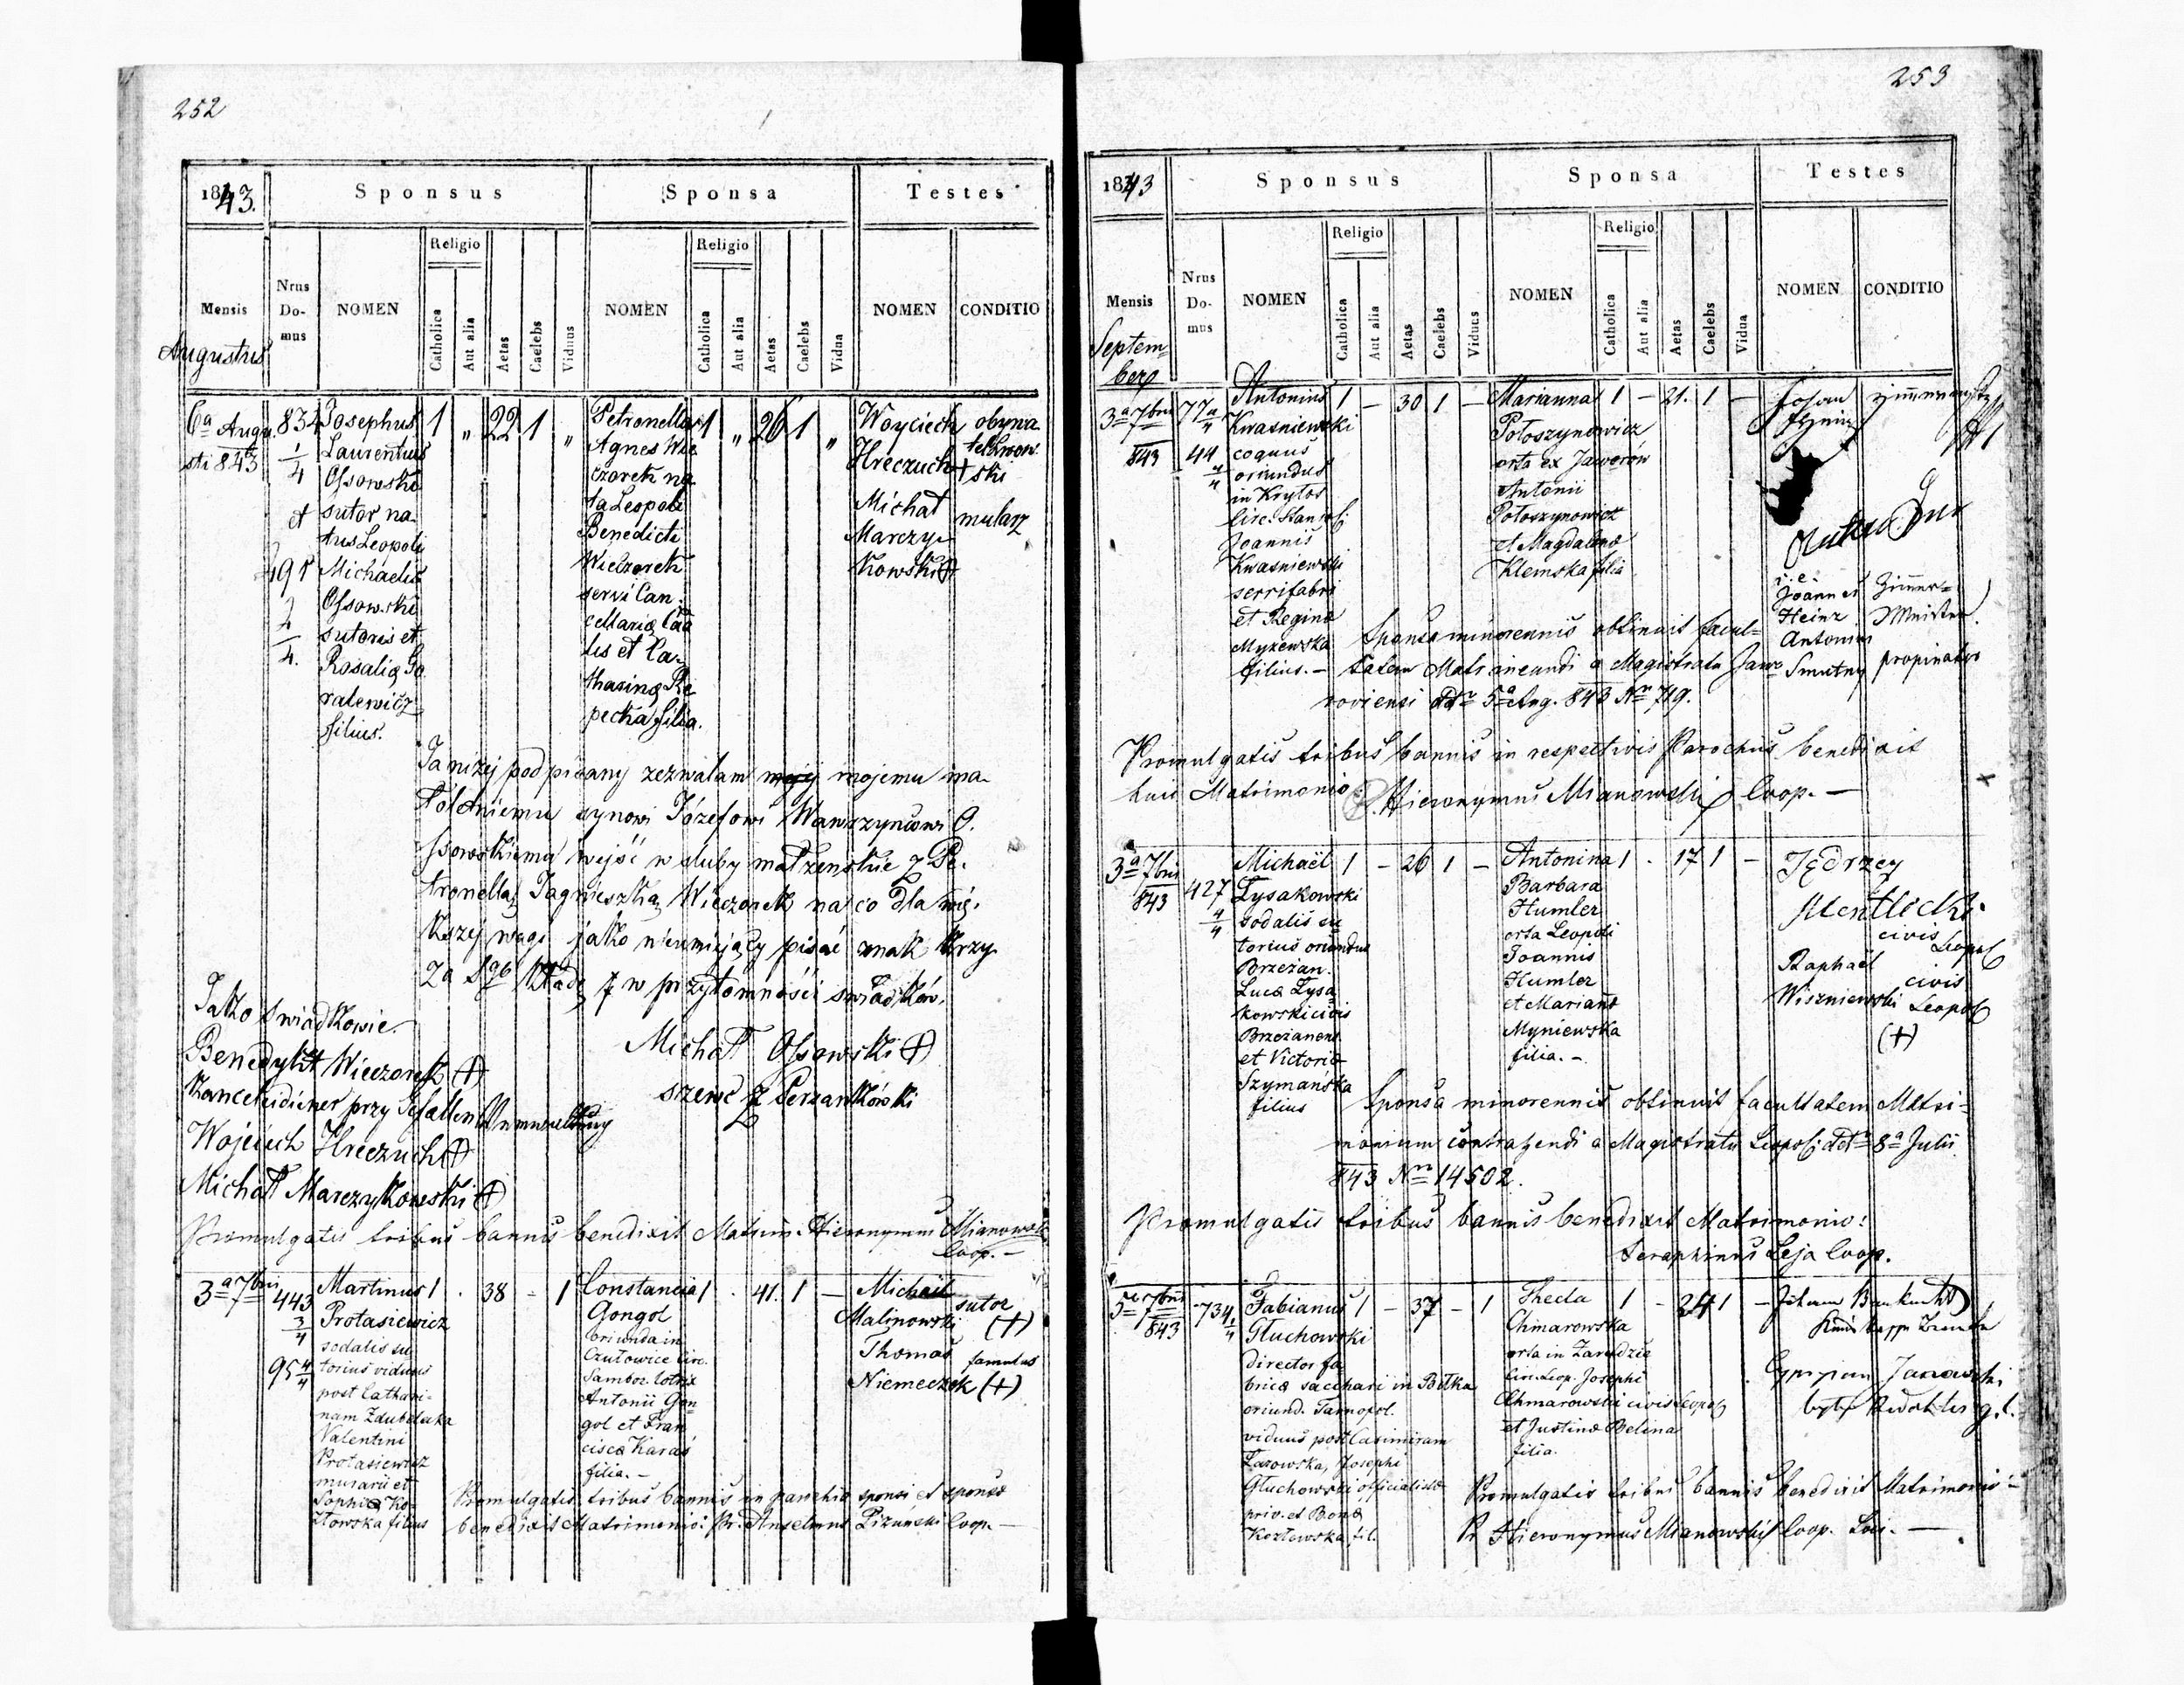 252
1843.
Sponsus
Sponsa
Testes
Religio
Religio
Mensis
Nrus Do-mus
NOMEN
Catholica
Aut alia
Aetas
Caelebs
Viduus
NOMEN
Catholica
Aut alia
Aetas
Caelebs
Vidua
NOMEN
CONDITIO
Augustus
6a Augu
sti 843
834
1/4
et
491
2/4.
Josephus
Laurentius
Ossowski
sutor na
tus Leopoli
Michaelis
Ossowski
sutoris et
Rosalię Go
ralewicz
filius.
1 „ 22 1 „
Petronella
Agnes Wie
czorek na
ta Leopoli
Benedicti
Wieczorek
servi Can.
tis et Ca
tharinę Re
pecka filia.
1 „ 26 1 „
Woyciech
Hreczuch +
Michał
Marczy
kowski (+)
obywa
tel Lwow
ski
mularz
Ja niżej podpisany zezwalam mojemu ma
łoletniemu synowi Józefowi Wawrzyńcowi O.
ssowskiemu wejść w śluby małżeńskie z Pe.
tronellą Jagnieszką Wieczorek na co dla wię.
kszej wagi jako nieumiejący pisać znak krzy
ża Sgo kładę + w przytomności swiadków.
Jako swiadkowie.
Michał Ossowski (+)
szewc z Persankówki
Benedykt Wieczorek (+)
Kanceleidiener przy Gefallen
Wojciech Hreczuch (+)
Michał Marczykowski (+)
Promulgatis tribus bannis benedixit Matrim. Hieronymus Mianowski
Coop. –
3a 7bris
443
3/4
95 4/4
Martinus
Protasiewicz
sodalis su
torius viduus
post Cathari-
nam
Valentini
Protasiewicz
murarii et
Sophia Ko-
złowska filius
1 . 38 - 1
Constancia
Gongol
oriunda in
Czułowice Circ.
Sambor. lotrix
Antonii Gon-
gol et Fran
cisca Karaś
filia. –
1 . 41. 1 –
Michael
Malinowski
Thomas
Niemeczek (+)
sutor
(+)
famulus
Promulgatis tribus bannis in parochia sponsi et sponsæ
benedixit Matrimonio: Pr. Anselmus Lizunski Coop. –
253
1843
Sponsus
Sponsa
Testes
Religio
Religio
Mensis
Nrus Do-mus
NOMEN
Catholica
Aut alia
Aetas
Caelebs
Viduus
NOMEN
Catholica
Aut alia
Aetas
Caelebs
Vidua
NOMEN
CONDITIO
Septem-
ber
3a 7bris
843
77 4/4
44 4/4
Antonius
Kwasniewski
coquus
oriundus
in Krytos
Circ. Stanisl.
Joannis
Kwasniewski
serrifabri
et Regina
Myzewska
filius. –
1 – 30 1 –
Marianna
Potoszynowicz
orta ex Jaworów
Antonii
Potoszynowicz
et Magdalena
Klemska filia
1 – 21. 1 –
i. e.
Joannes
Heinz
Antonius
Smutny
Zimmer-
Meister
propinator
Sponsa minorennis obtinuit facul-
tatem Matr. ineundi a Magistratu Jawo
roviensi ddto 5a Aug. 843 Nro 719.
Promulgatis tribus bannis in respectivis Parochiis benedixit
huic Matrimonio Hieronymus Mianowski Coop. –
3a 7bris
843
427
4/4
Michaël
Lysakowski
sodalis su
torius oriundus
Brzezan.
Luca Lysa
kowski civis
Brzezanens
et Victoria
Szymańska
filius
1 – 26 1 –
Antonina
Barbara
Humler
orta Leopoli
Joannis
Humler
et Marianæ
Myniewska
filia. –
1 . 17 1 –
Jędrzey
Mentlicki
civis
Leopol
Raphaël
Wiszniewski
civis
Leopol
(+)
Sponsa minorennis obtinuit facultatem Matri-
monium contrahendi a Magistratu Leopoli ddto 8a Julii
843 Nro 14502.
Promulgatis tribus bannis benedixit Matrimonio:
Seraphinus Leja Coop.
5a 7bris
843
734
1/4
Fabianus
Głuchowski
director fa
brica sacchari in Bilka
oriund. Tarnopol.
viduus post Casimiram
Lazowska, Josephi
Głuchowski officialistæ
priv. et Bona
Kozłowska fil.
1 – 37 – 1
Thecla
Chmarowska
orta in Zarudzie
Circ. Leop. Josephi
Chmarowski civis Leopol
et Justina Belina
filia.
1 – 24 1 –
Cypryian Janowski
Promulgatis tribus bannis benedixit Matrimonio –
Pr Hieronymus Mianowski Coop. Loci. –